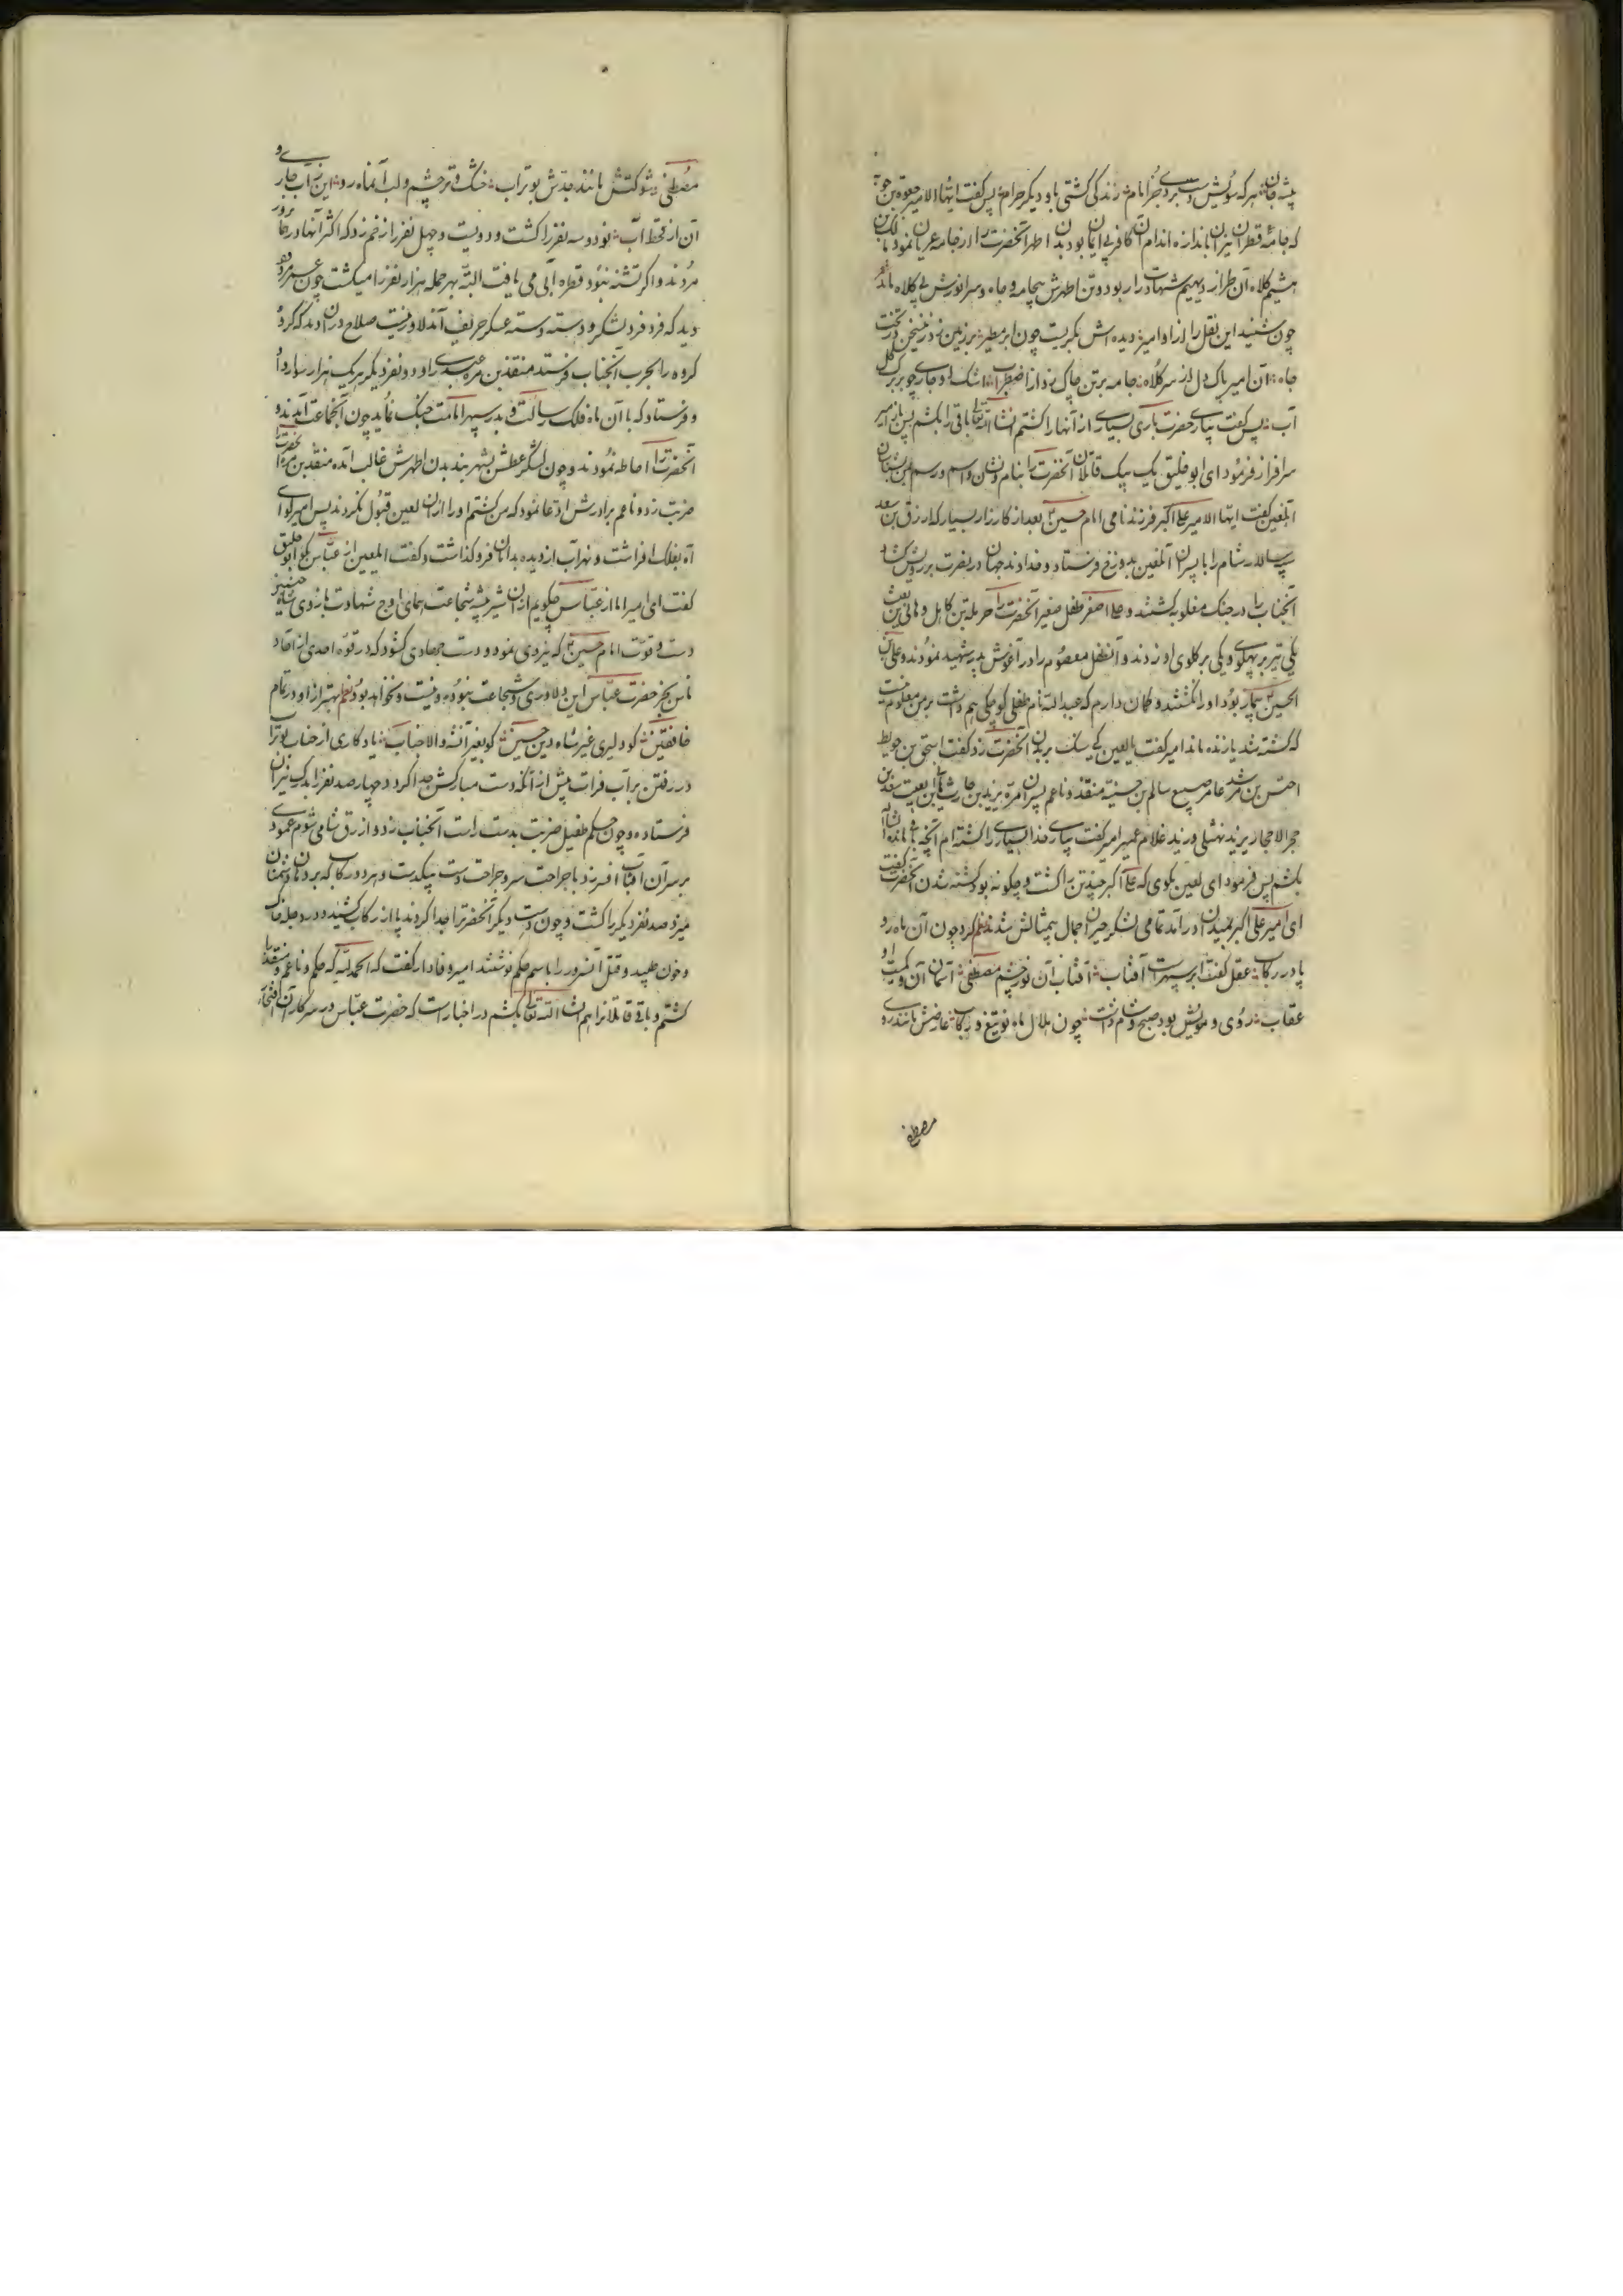 که جامهٔ قطران نیران باندازه اندام آن کافر بی ایمان بود بدن اطهر آنحضرت را از جامه عریان نمود مالک بن
هشیم کلاه آن طراز دیهیم شهادت را ربود و تن اطهرش بیجامه و جاه و سر انورش بی کلاه ماند
چون شنید این نقل را از او امیر دیده اش بگریست چون ابر مطیر بر زمین زد
جاه آن امیر پاک دل از سر کلاه جامه بر تن چاک زد از اضطراب اشک او جاری چو بر
آب پس گفت بیاری حضرت باری بسیاری از آنها را کشتم انشاء الله تعالی باقی را بکشم پس باز امیر
سرافراز فرمود ای ابو خلیق یک بیک قاتلان آنحضرت را بنام و نشان و اسم و رسم
العین گفت ایها الامیر علی اکبر فرزند نامی امام حسین بعد از کارزار بسیار که ارزق بن سعد
سپهسالار شام را با پسران آلعین بدوزخ فرستاد و خداوند جهان در نصرت بر رویش گشاد
آنجناب را در جنک مغلوبه کشتند و علی اصغر طفل صغیر آنحضرت را حرمله بن کاهل و هانی بن
یکی تیر بر پهلوی و یکی بر گلوی او زدند و آنطفل معصوم را در آغوش پدر شهید نمودند و علی بن
الحسین بیمار بود او را نکشتند و گمان دارم که عبدالله نام طفلی کوچکی هم داشت بر من معلوم نیست
که کشته شد یا زنده ماند امیر گفت یا لعین کی سنک بر بدن آنحضرت زد گفت اسحق بن
اخنس بن مرثد عامر صبیع سالم بن منقذ و ناعم پسران مره یزید بن حارث
حجر الاحجار یزید نهشلی و رند غلام عمیر امیر گفت بیاری خدا بسیاری را کشته ام آنچه باقی مانده انشاءالله
بکشم پس فرمود ای لعین بگوی که علی اکبر چند تن را کشت و چگونه بود کشته شدن آنحضرت گفت
ای امیر علی اکبر بمیدان درآمد تمامی لشکر حیران جمال بیمثالش شدند نظم کرد چون آن ماه رو
پا در رکاب عقل گفتا بر سپهرست آفتاب آفتاب آن نور چشم مصطفی آسمان آن
عقاب روی و مویش بود صبح و شام داشت چون هلال ماه نو تیغ و رکاب عارضش مانند روی
مصطفی
مصطفی شوکتش مانند جدش بوتراب خشک و تر چشم و لب آنماه رو این ز آب جاری و
آن از قحط آب نود و سه نفر را کشت و دویست و چهل نفر را زخم زد که اکثر آنها در همانروز
مردند و اگر تشنه نبود قطره آبی می یافت البته بهر حمله هزار نفر را میکشت چون عمر
دید که فرد فرد لشکر و دسته دسته عسکر حریف آندلاور نیست صلاح در آن دید که گروه
گروه را بحرب آنجناب فرستد منقذ بن مره عبدی را و دو نفر دیگر هر یک هزار سوار داد
و فرستاد که با آن ماه فلک رسالت و بدر سپهر امامت جنک نماید چون آنجماعت آمدند و
آنحضرت را احاطه نمودند و چون لشکر عطش بشهربند بدن اطهرش غالب آمده منقذ بن مره آنحضرت را
ضربت زد و ناعم برادرش ادعا نمود که من کشتم او را از آن لعین قبول نکردند پس امیر لوای
آه بفلک افراشت و نهر آب از دیده بدامان فرو گذاشت و گفت ایلعین از عباس بگو ابو خلیق
گفت ای امیر اما از عباس چگویم از آن شیر بیشه شجاعت همای اوج شهادت بازوی شاه
دست و قوت امام حسین که نیروی نمود و دست جهادی گشود که در قوه احدی از افراد
ناس بجز حضرت عباس این دلاوری و شجاعت نبوده و نیست و نخواهد بود نظم بهتر از او در تمام
خافقین کو دلیری غیر شاه دین حسین کو بغیر آنشه والا جناب یادگاری از جناب بوتراب
در رفتن بر آب فرات پیش از آنکه دست مبارکش جدا گردد چهار صد نفر را بدرک نیران
فرستاده و چون حکم طفیل ضربت بدست راست آنجناب زد و ازرق شامی شوم عمودی
بر سر آن آفتاب افسر زد با جراحت سر و جراحت دست بیکدست و بهر دو رکاب که بر دهان دشمنان
میزد صد نفر دیگر را کشت و چون دست دیگر آنحضرت را جدا کردند پا از رکاب کشیده در دجله خاک
و خون طپید و قتل آنسرور را باسم حکم نوشتند امیر وفادار گفت که الحمدلله که حکم و ناعم و منقذ را
کشتم و باقی قاتلانرا هم انشاء الله تعالی بکشم در اخبار است که حضرت عباس در سرکار آن